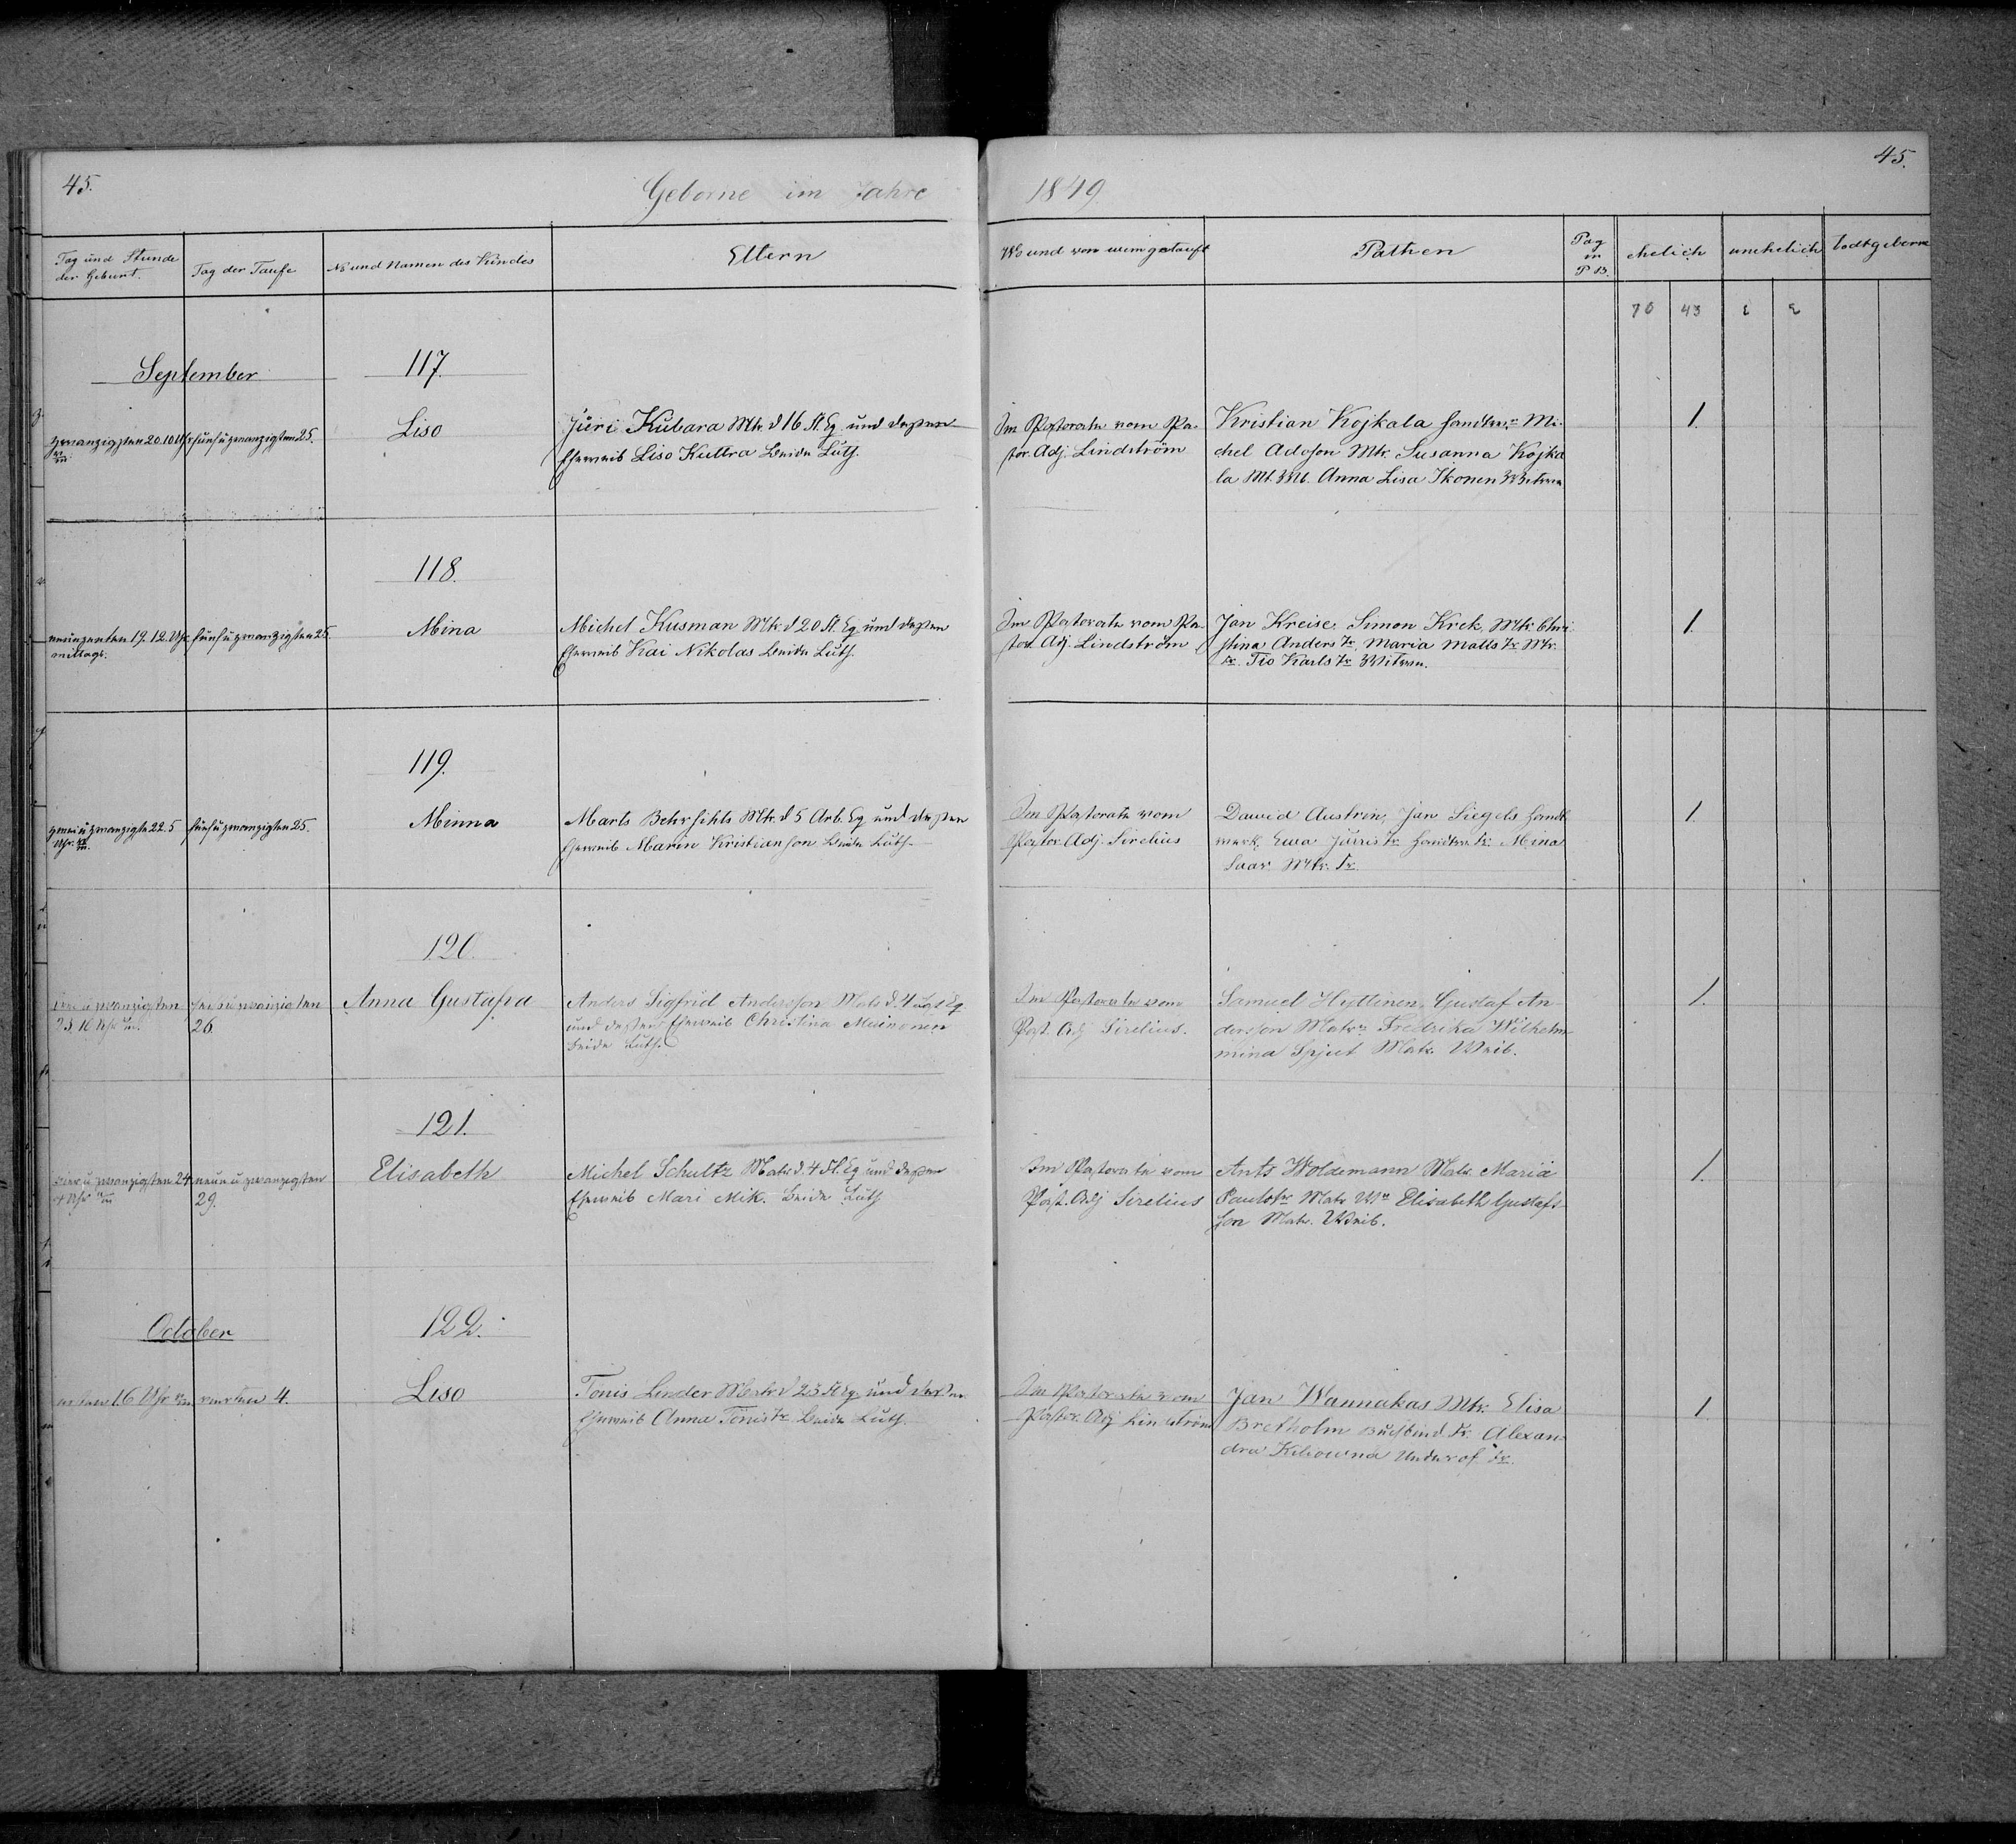 45.
Geborne im Jahre 1849.
45.
Tag und Stunde der Geburt.
Tag der Taufe
No und Namen des Kindes
Eltern
Wo und von wem getauft
Pathen
Pag in P B.
ehelich
unehelich
todtgeborne
70 43
September
117.
zwanzigsten 20. 10 Uhr
fünf u zwanzigsten 25.
Liso
Jüri Kubara Mtr. d 16 Fl. Eq. und dessen
Eheweib Liso Kuttra beide Luth.
Im Pastorate vom Pa-
stor. Adj. Lindström
Kristian Kojkala Mi-
chel Adoson Mtr. Susanna Kojka
la Anna Lisa Ikonen
1.
118.
neunzenten 19. 12. Uhr
mittags.
fünf u zwanzigsten 25
Mina
Michel Kusman Mtr. d 20 Fl. Eq und dessen
Eheweib Kai Nikolas beide Luth.
Im Pastorate vom Pa-
stor Adj. Lindström
Jan Kreise, Simon Krek, Mtr. Chri
stina Anders Tr. Maria Matts Tr Mtr.
Tr. Tio Karls Tr
1.
119.
zwei u zwanzigste 22. 5
Uhr
fünf u zwanzigsten 25.
Minna
Marts Behrsihts Mtr. d 5 Arb. Eq und dessen
Eheweib Marin Kristianson beide Luth.
Im Pastorate vom
Pastor. Adj. Sirelius
David Austrin, Jan Siegels Handt
werk. Ewa Jürris Tr. Mina
Saar Mtr. Tr.
1.
120.
u zwanzigsten
23. 10 Uhr
u zwanzigsten
26.
Anna Gustafva
Anders Sigfrid Andersson Matr. d. 4 Eq
und dessen Eheweib Christina Muinonen
beide Luth.
Im Pastorate vom
Past. Adj Sirelius.
Samuel Hyttinen, Gustaf An
dersson Matr. Fredrika Wilhelm
mina Spjut Matr. Weib.
1.
121.
vier u zwanzigsten 24
Uhr
neun u zwanzigsten
29.
Elisabeth
Michel Schultz Matr. d. 4 Fl. Eq und dessen
Eheweib Mari Mik. beide Luth
Im Pastorate vom
Past. Adj Sirelius
Ants Woldemann Matr. Maria
Pauls Tr Matr Elisabeth Gustafs
son Matr. Weib.
1.
October
122.
1. 6 Uhr
vierten 4.
Liso
Tonis Linder Matr d 23 Fl Eq. und dessen
Eheweib Anna Tönis Tr beide Luth.
Im Pastorate vom
Pastor. Adj Lindström
Jan Wannakas Mtr. Elisa
Bretholm Buchbind. Tr. Alexan
dra Kiliowna Tr.
1.